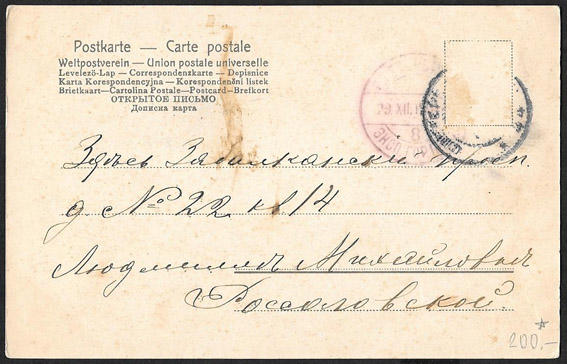 Postkarte — Carte postale
Weltpostverein — Union postale universelle
Levelező-Lap — Correspondenzkarte — Dopisnice
Karta Korespondencyjna — Korespondenční listek
Briefkaart—Cartolina Postale—Postcard—Brefkort
ОТКРЫТОЕ ПИСЬМО
Дописна карта
29.XII.
8
44
Здѣсь Забалканскій просп.
д. № 22 кв 14
Людмилѣ Михайловнѣ
Россаловской.
200.-